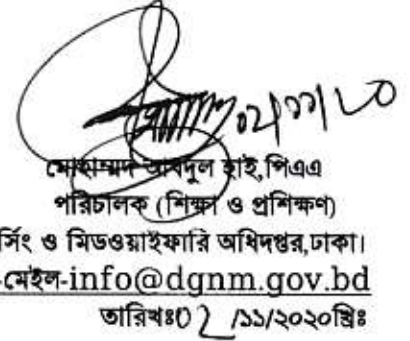 ০২/১১/২০
মোহাম্মদ আবদুল হাই,পিএএ
পরিচালক (শিক্ষা ও প্রশিক্ষণ)
র্সিং ও মিডওয়াইফারি অধিদপ্তর,ঢাকা।
-মেইল-info@dgnm.gov.bd
তারিখঃ০২/১১/২০২০খ্রিঃ